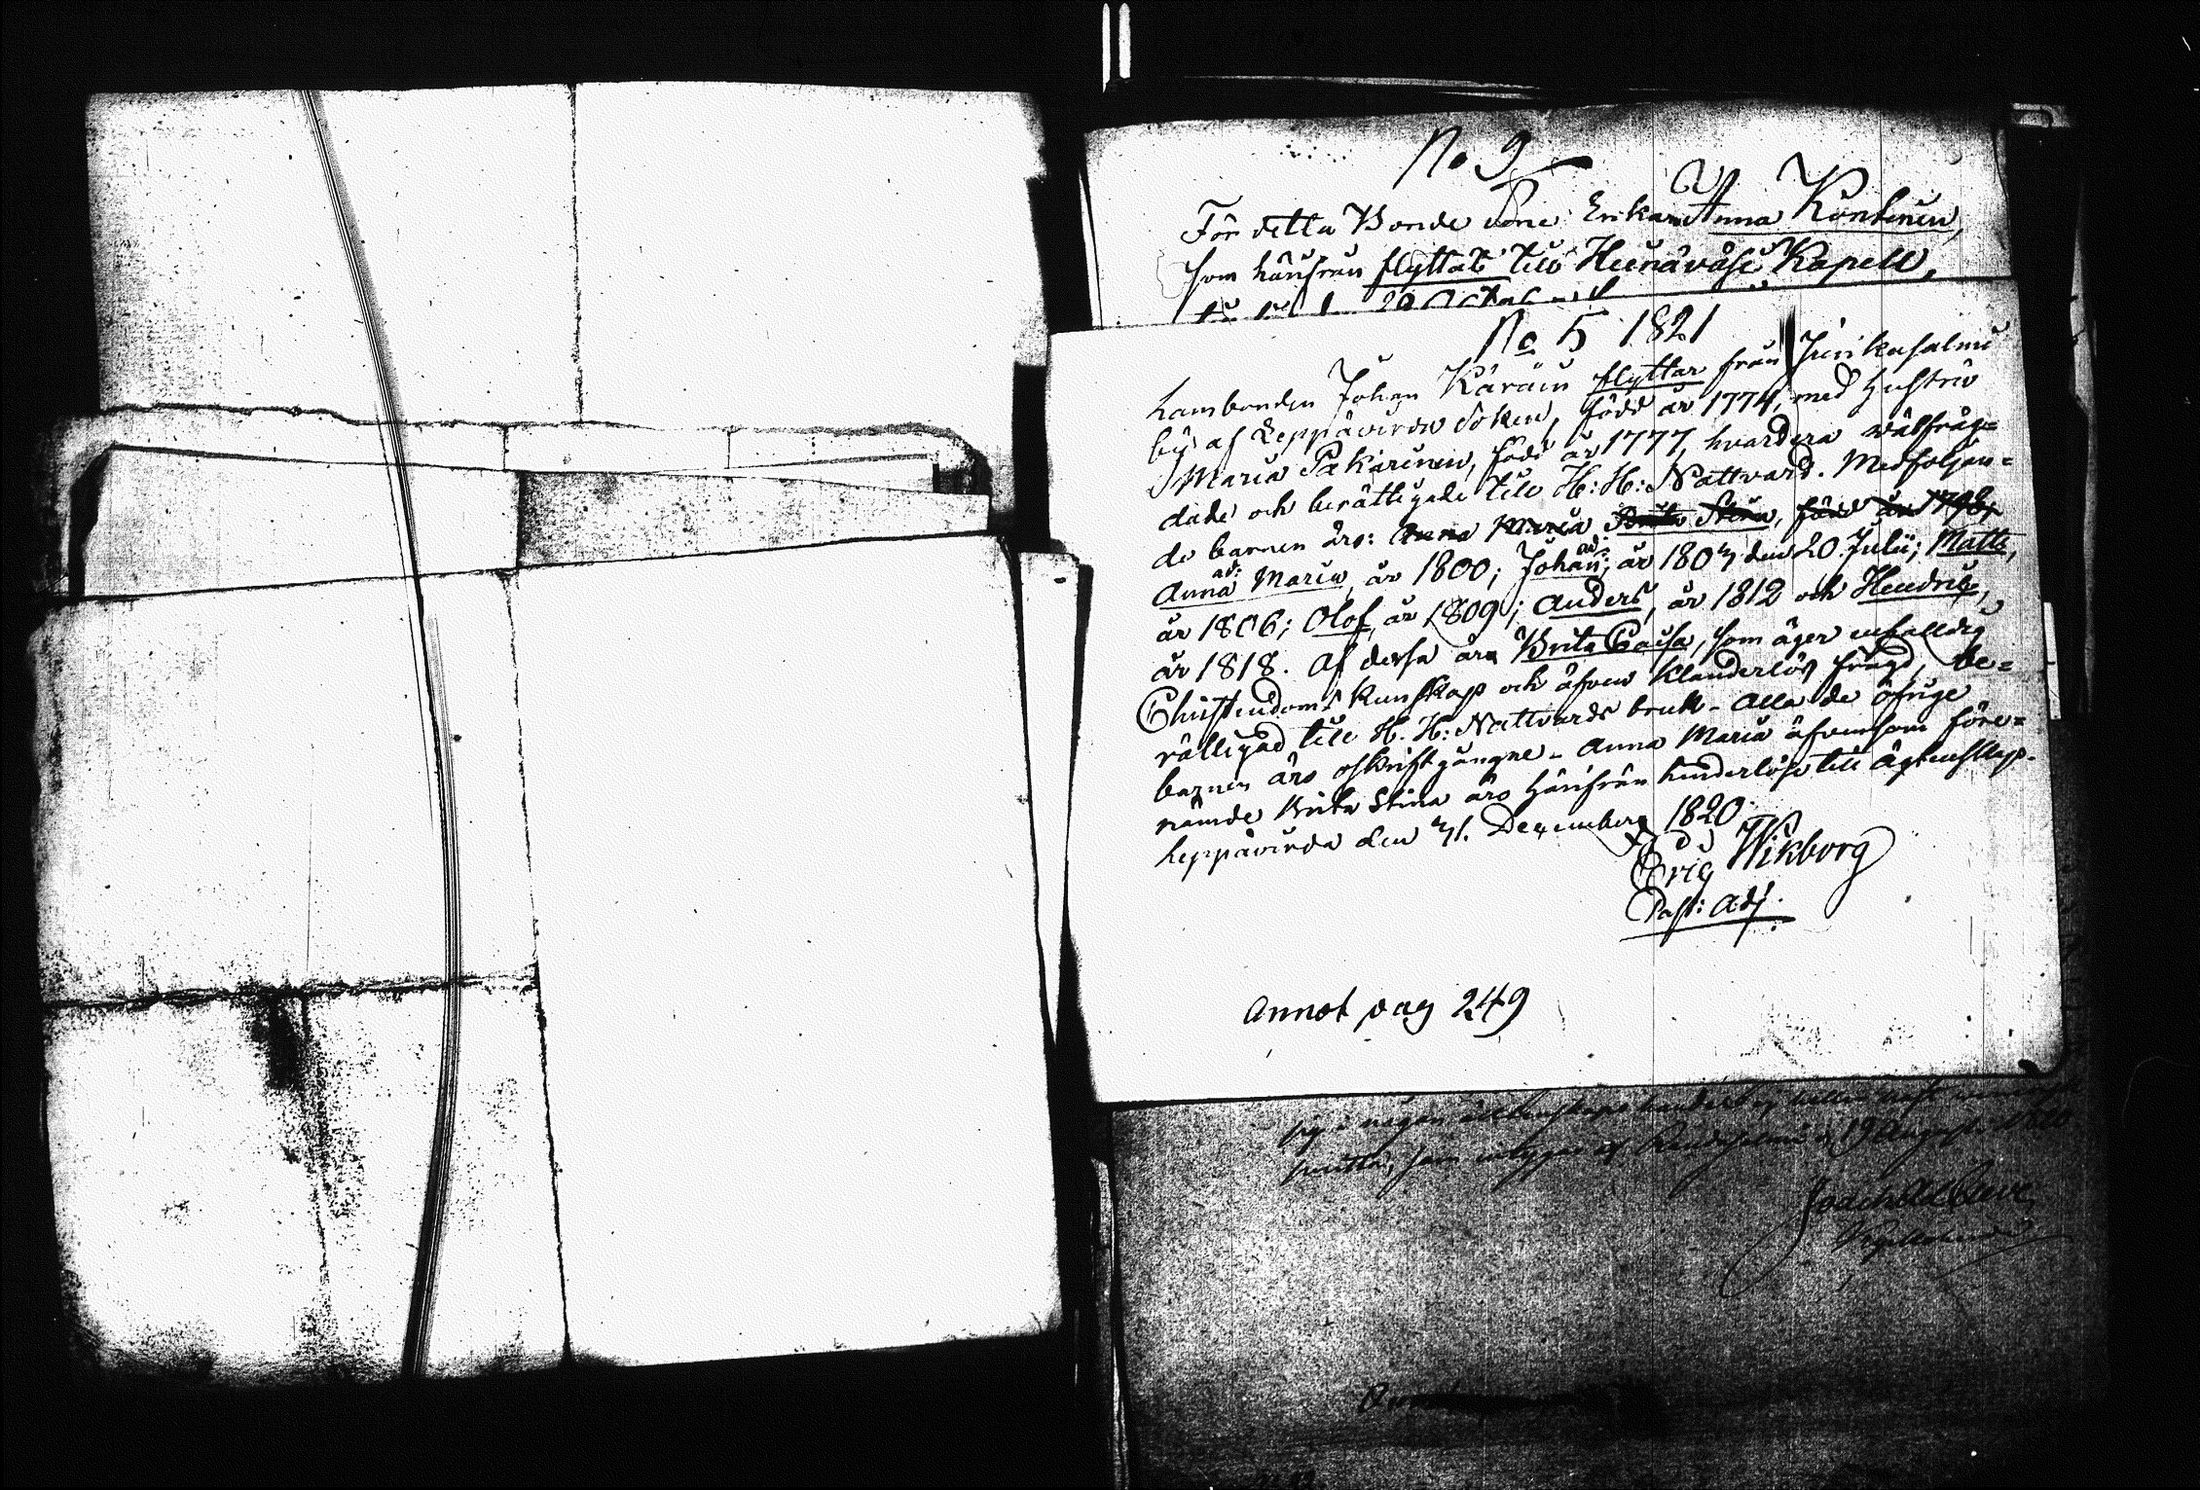 No 9
För detta Bonde Sone Enkan Anna Kontinen,
som härifrån flyttat till Heinäväsi Kapell,
29 Octob
No 5 1821
Lambonden Johan Käräin flyttar från Juvikasalmi
by af Leppävirda Soken, född år 1774, med Hustru
Maria Pakarinen, född år 1777, hvardera välfräg=
dade och berättigade till H: H: Nattvard. Medföljan=
de barnen äro: Anna Maria Brita Stina, född år 1798,
Anna Maria, år 1800; Johan, år 1803 den 20 Julii; Matts,
år 1806; Olof, år 1809; Anders, år 1812 och Hendric,
år 1818. Af dessa äro Brita Caisa, som äger enfaldig
Christendoms kunskap och äfven klanderlös frägd, be=
rättigad till H. H: Nattvards bruk - Alla de öfrige
barnen äro oskriftgångne - Anna Maria äfvensom före=
nämde Brita Stina äro härifrån hinderlöse till ägtenskap.
Leppävirda den 31. December 1820
Eric Wikborg
Past: Adj.
Annot pag 249
sig i någon
19 Augusti